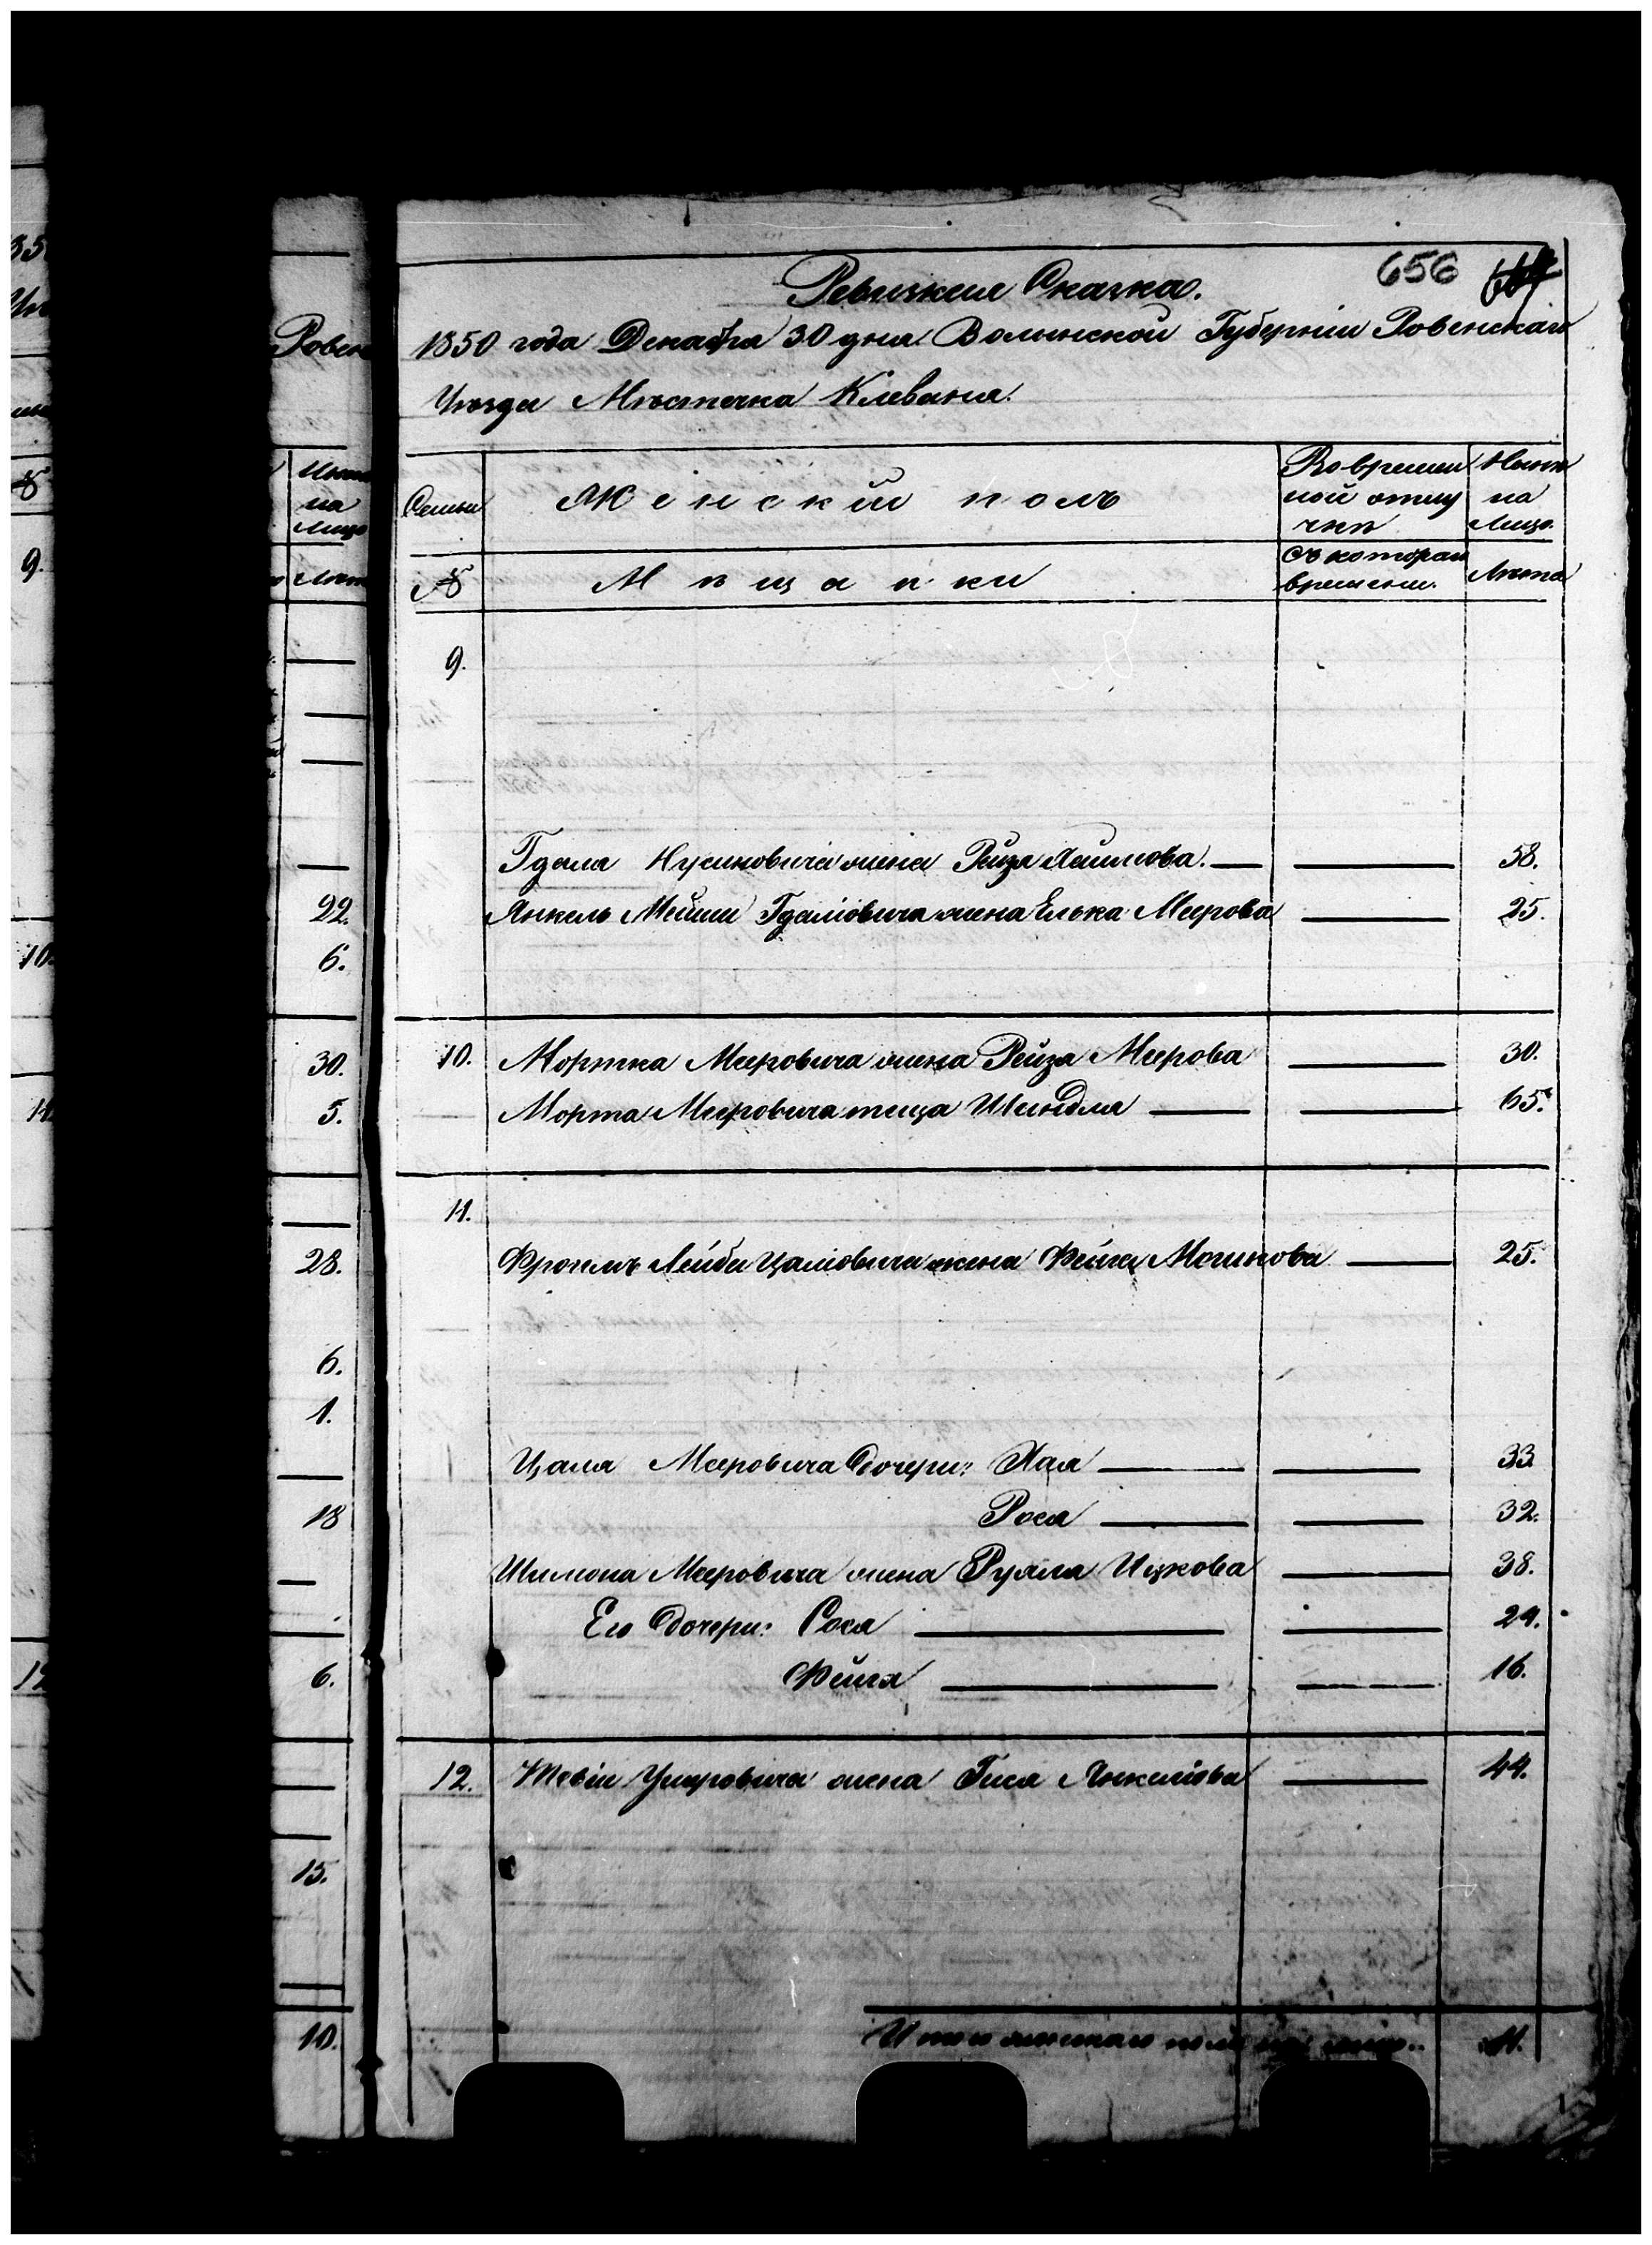 656
Ревизская Сказка.
1850 года Декабря 30 дня Волынской Губерніи Ровенскаго
Уѣзда Мѣстечка Клеваня.
Семьи
Женскій полъ
Во времен
ной отлу
чкѣ
Нынѣ
на
Лицо.
№
Мѣщанки
Съ котораго
времени.
Лѣта
9.
Гдаля Нусиновича жена Рейзя 58.
Янкель Мейши Гдаліовича жена Елька Меерова 25.
10. Мортка Мееровича жена Рейзя Меерова 30.
Морта Мееровича теща Шейндля 65.
11.
Фроимъ Лейби Цаліовича жена Фейга 25.
Цаля Мееровича дочери: Хая 33
Рося 32.
Шимона Мееровича жена Ицкова 38.
Его дочери: Рося 29.
Фейга 16.
12. жена Гися Янкеліова 44.
Итого женскаго пола на лицо.. 11.
Ровен
на
Лицо
Лѣта
22.
6.
30.
5.
28.
6.
1.
18
6.
15.
10.
9.
10.
11
12